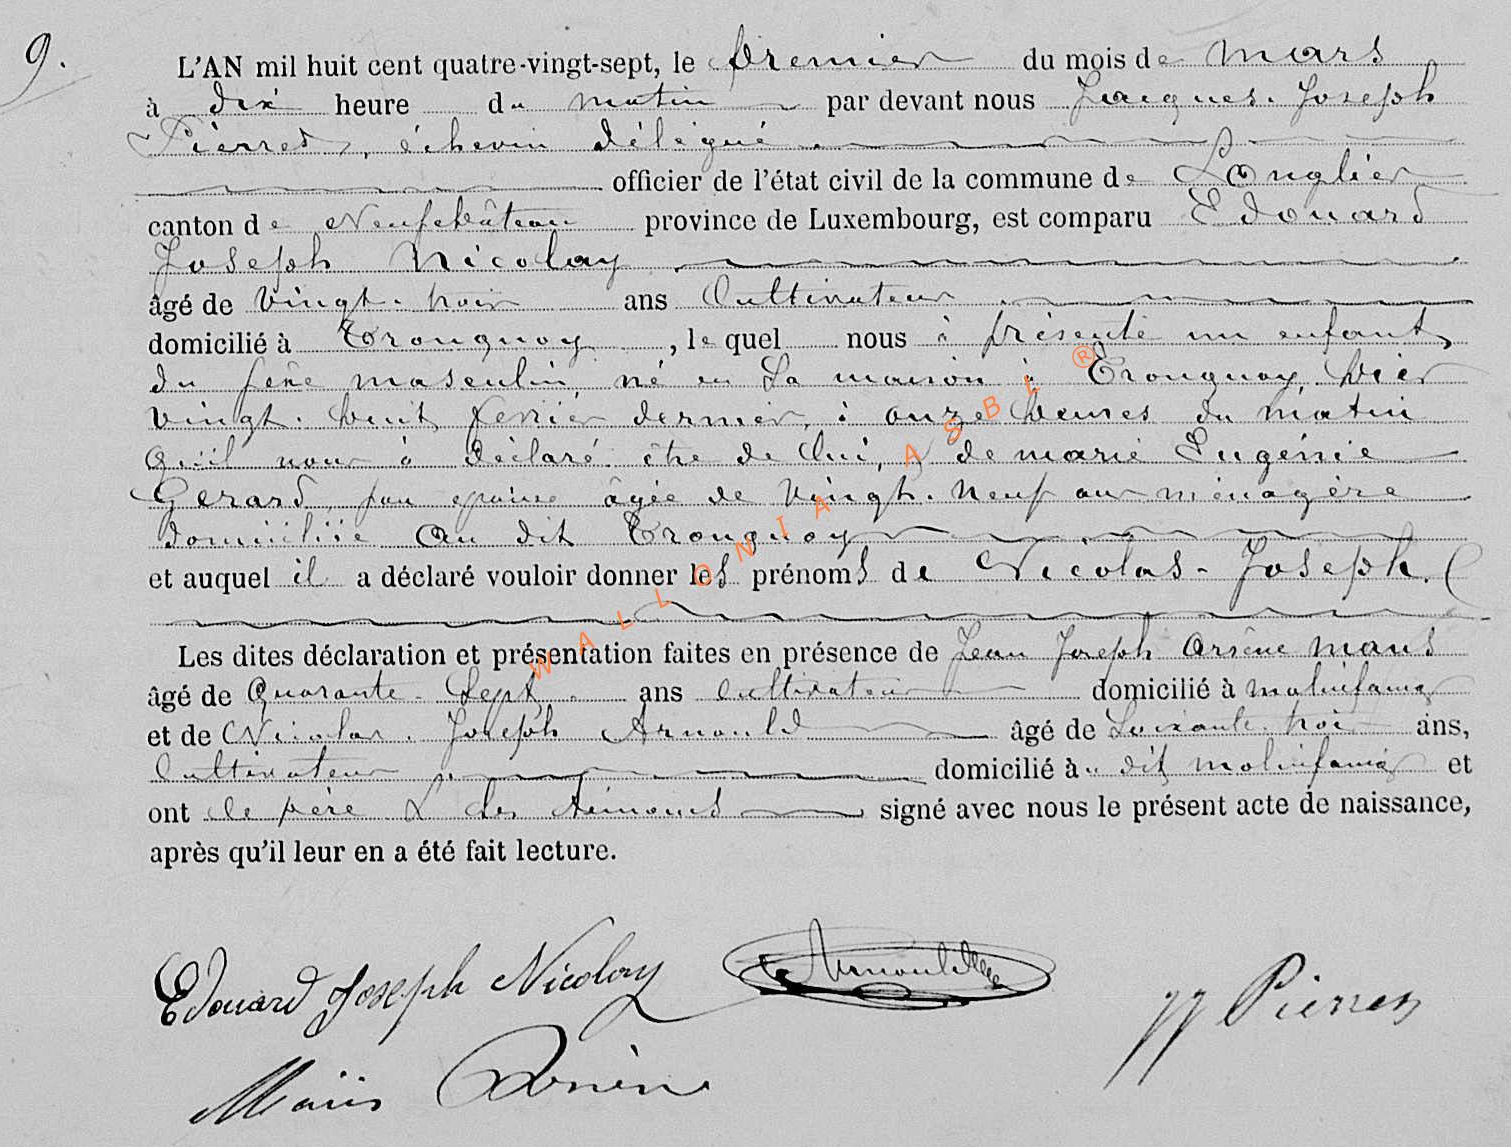 9.
L'AN mil huit cent quatre-vingt-sept, le premier du mois de mars
à dix heure du matin par devant nous Jacques Joseph
Pierret, échevin délégué
officier de l'état civil de la commune de Longlier
canton de Neufchâteau province de Luxembourg, est comparu Edouard
Joseph Nicolay
âgé de vingt-trois ans Cultivateur
domicilié à Tronquoy, lequel nous à présenté un enfant
du sexe masculin né en Sa maison à Tronquoy, hier
vingt-huit fevrier dernier, à onze heures du matin
Qu'il nous à déclaré être de lui, & de marie Eugénie
Gerard, son epouse âgée de vingt-neuf ans ménagère
domiciliée au dit Tronquoy
et auquel il a déclaré vouloir donner les prénoms de Nicolas-Joseph.
Les dites déclaration et présentation faites en présence de Jean Joseph Arsène
âgé de Quarante-Sept ans Cultivateur domicilié à molinfaing
et de Nicolas Joseph Arnould âgé de Soixante-trois ans,
Cultivateur domicilié au dit molinfaing et
ont le père & les témoins signé avec nous le présent acte de naissance,
après qu'il leur en a été fait lecture.
Edouard Joseph Nicolay Arnould
JJ Pierret
Arsène
WALLONIA ASBL ®